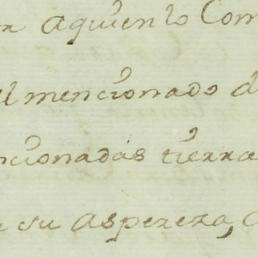 aquien lo Com
mencionado d
ncionadas tierra
su aspereza,